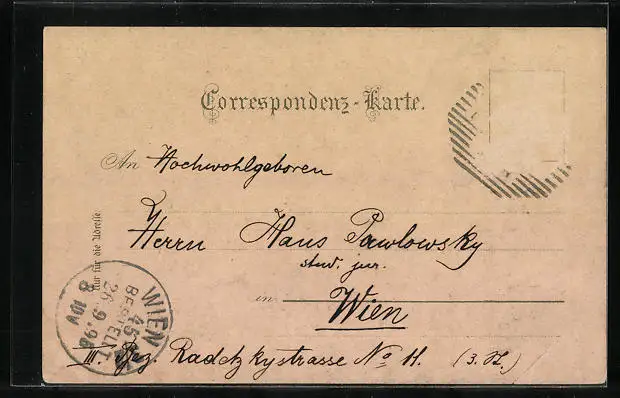 Correspondenz-Karte.
An Hochwohlgeboren
Herrn Hans Pawlowsky
stud. jur.
in Wien
III. Bez. Radetzkystrasse No 11. (3. St.)
Nur für die Adresse
WIEN
45
BESTELLT
26.9.98